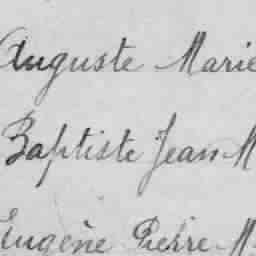 Auguste Marie
Baptiste Jean M
Eugène Pierre M